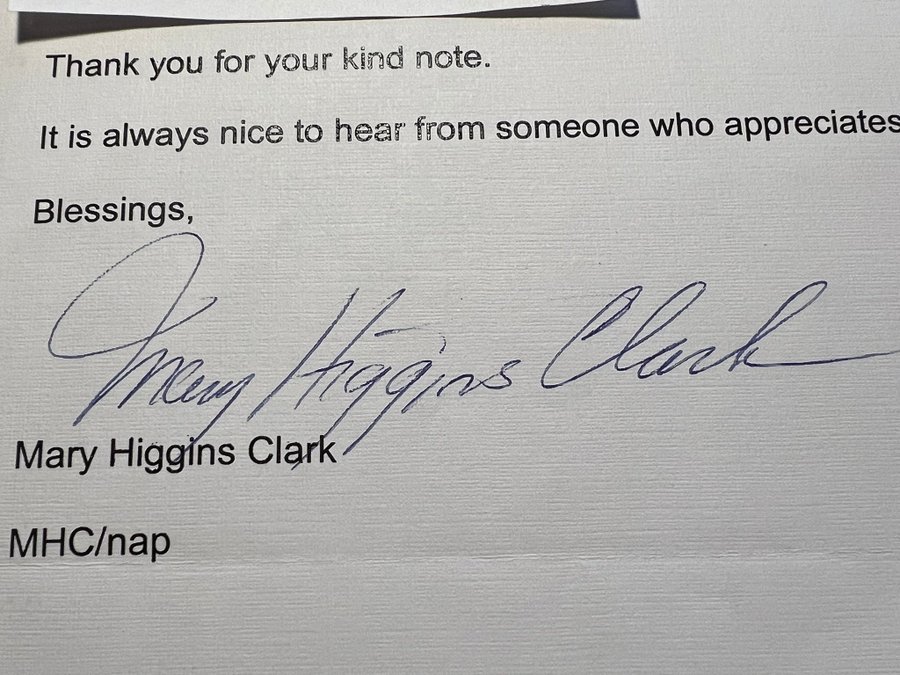 Thank you for your kind note.
It is always nice to hear from someone who appreciates
Blessings,
Mary Higgins Clark
Mary Higgins Clark
MHC/nap